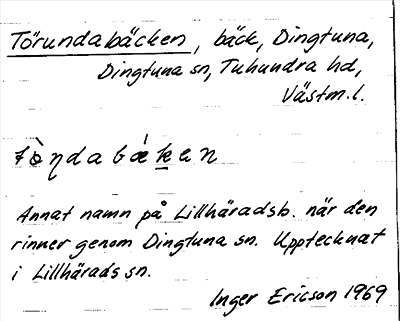 Törundabäcken, bäck, Dingtuna,
Dingtuna sn, Tuhundra hd,
Västm.l.
tò̱ṇdabǽḵen
Annat namn på Lillhäradsb. när den
rinner genom Dingtuna sn. Upptecknat
i Lillhärads sn.
Inger Ericson 1969